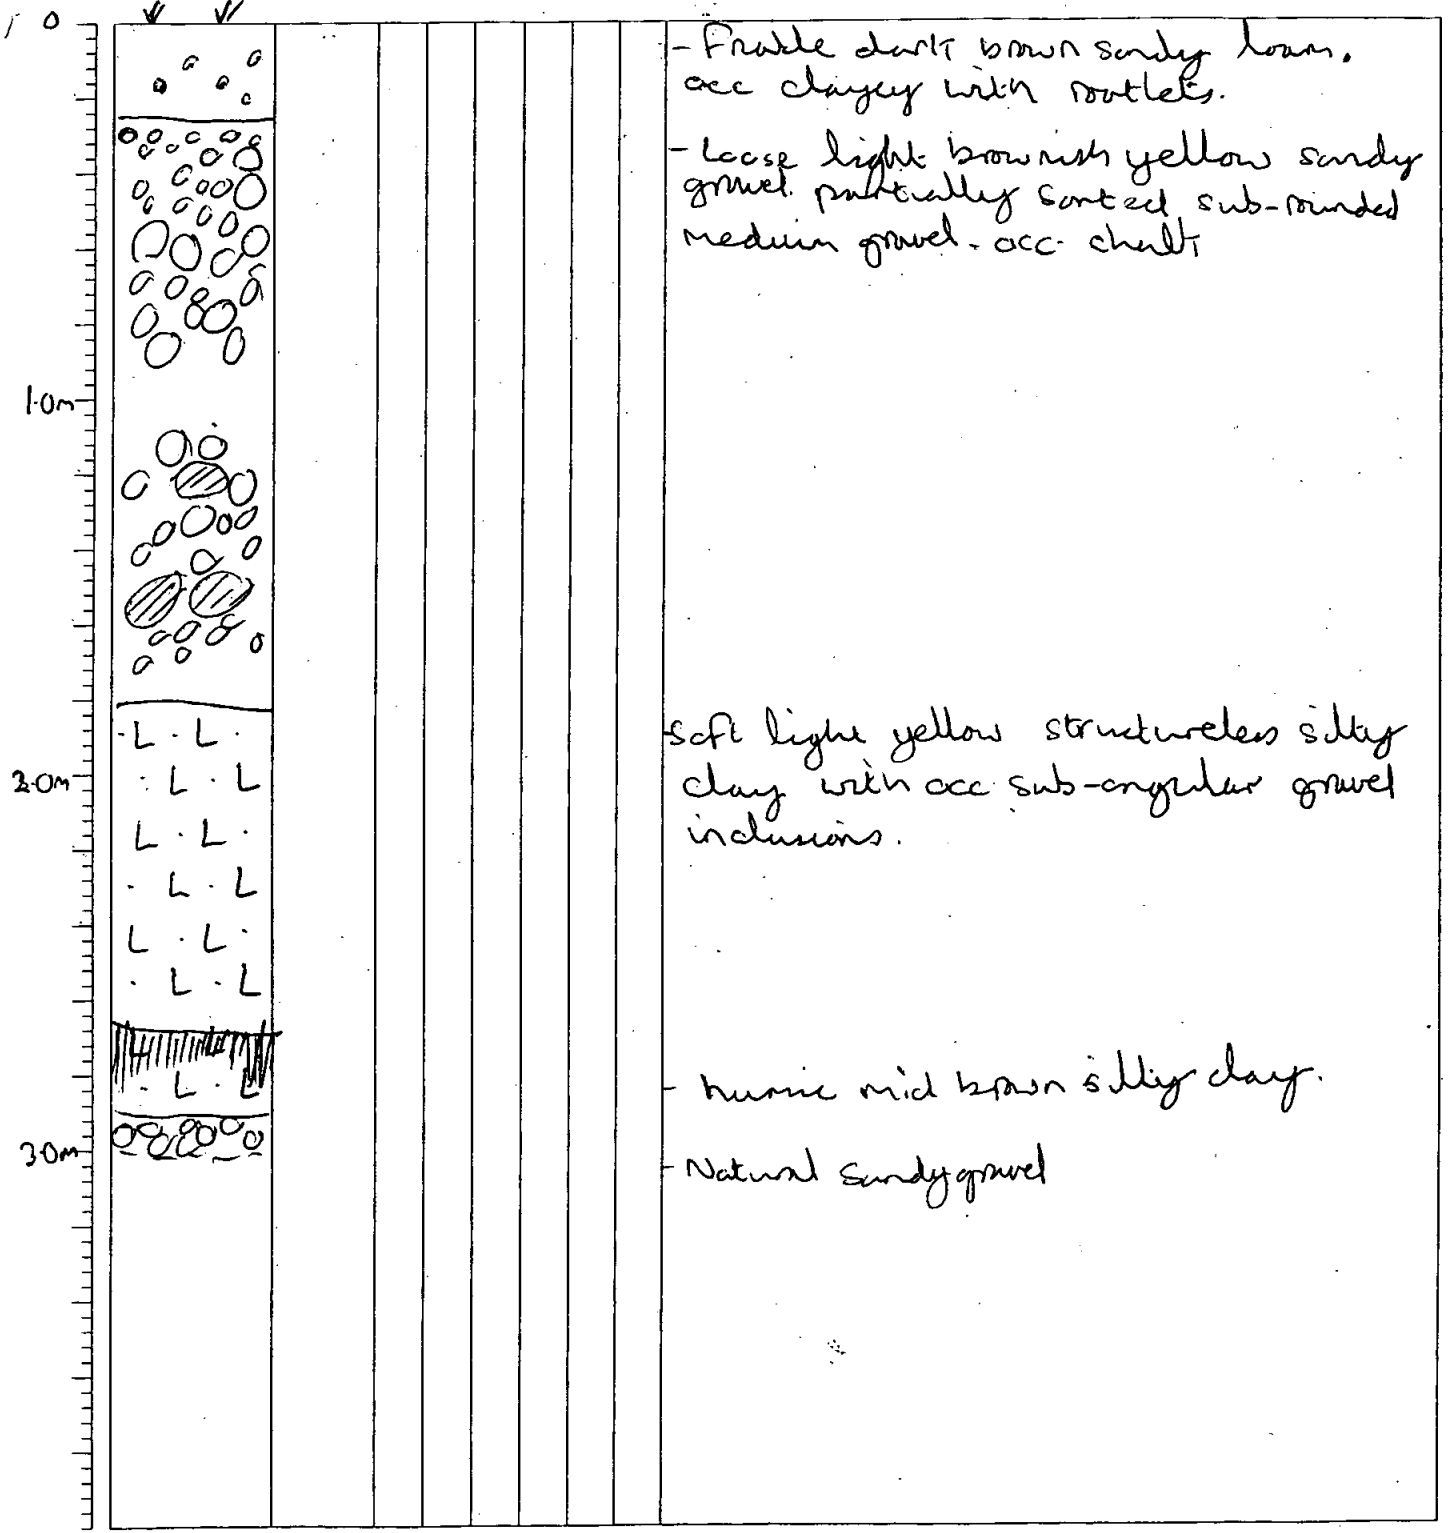 0
- Friable dark brown sandy loam.
occ clayey with rootlets.
- Loose light brownish yellow sandy
gravel. partially sorted sub-rounded
medium gravel. occ. chalk
1.0m
Soft light yellow structureless silty
2.0m
clay with occ sub-angular gravel
inclusions.
L L
L L
L L
L L
L L
L L
L L
- humic mid brown silty clay.
3.0m
- Natural Sandy gravel